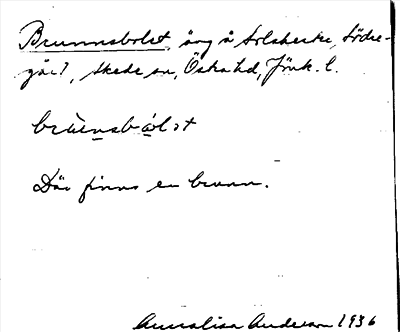 Brunnsbolet, äng å Solaberke, Södre-
gård, Skede sn, Östra hd, Jönk. l.
brùensbὼlət
Där finns en brunn.
Annalisa Anderson 1936